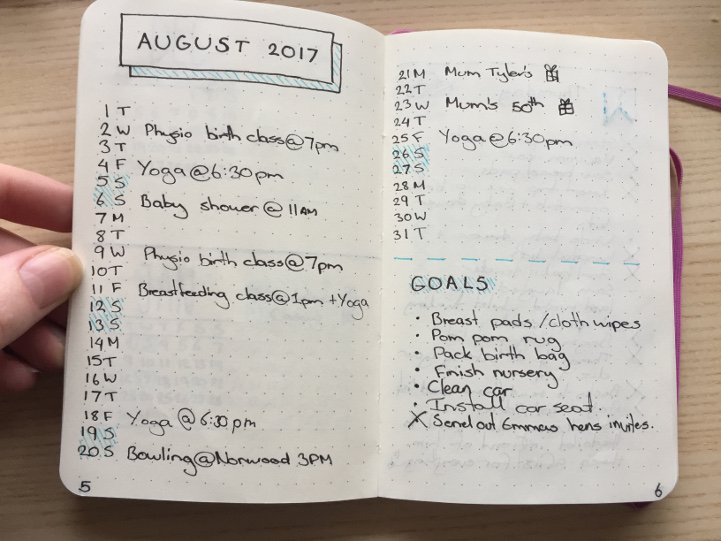 AUGUST 2017
1 T
2 W Physio birth class@7pm
3 T
4 F Yoga@6:30pm
5 S
6 S Baby shower @ 11AM
7 M
8 T
9 W Physio birth class@7pm
10 T
11 F Breastfeeding class@1pm +Yoga
12 S
13 S
14 M
15 T
16 W
17 T
18 F Yoga @6:30pm
19 S
20 S Bowling@Norwood 3PM
5
21 M Mum Tyler's
22 T
23 W Mum's 50th
24 T
25 F Yoga@6:30pm
26 S
27 S
28 M
29 T
30 W
31 T
GOALS
• Breast pads/cloth wipes
• Pom pom rug
• Pack birth bag
• Finish nursery
• Clean car
• Install car seat.
X Send out Emmas hens invites.
6